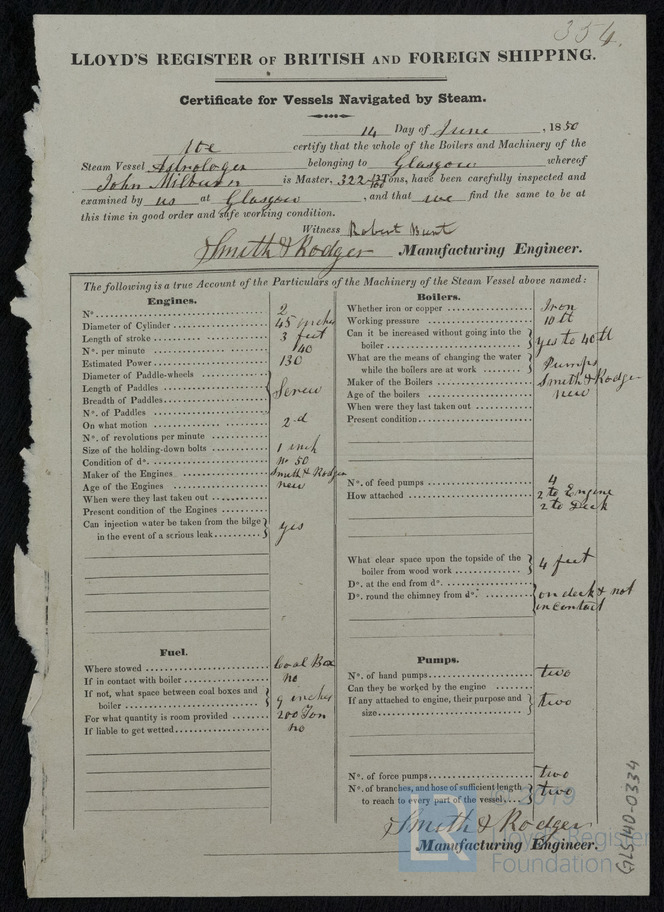 354.
LLOYD'S REGISTER OF BRITISH AND FOREIGN SHIPPING.
Certificate for Vessels Navigated by Steam.
14 Day of June, 1850
We certify that the whole of the Boilers and Machinery of the
Steam Vessel Astrologer belonging to Glasgow whereof
John Milburn is Master, 322 Tons, have been carefully inspected and
examined by us at Glasgow, and that we find the same to be at
this time in good order and safe working condition.
Witness Robert Bunt
Smith & Rodger Manufacturing Engineer.
The following is a true Account of the Particulars of the Machinery of the Steam Vessel above named:
Engines.
No. 2
Diameter of Cylinder 45 inches
Length of stroke 3 feet
No. per minute 40
Estimated Power 130
Diameter of Paddle-wheels
Length of Paddles Screw
Breadth of Paddles
No. of Paddles
On what motion 2.d
No. of revolutions per minute
Size of the holding-down bolts 1 inch
Condition of do. No 50
Maker of the Engines Smith & Rodger
Age of the Engines new
When were they last taken out
Present condition of the Engines
Can injection water be taken from the bilge
in the event of a serious leak yes
Fuel.
Where stowed Coal Box
If in contact with boiler no
If not, what space between coal boxes and
boiler 9 inches
For what quantity is room provided 200 Ton
If liable to get wetted no
Boilers.
Whether iron or copper Iron
Working pressure 10 lb
Can it be increased without going into the
boiler yes to 40 lb
What are the means of changing the water
while the boilers are at work Pumps
Maker of the Boilers Smith & Rodger
Age of the boilers new
When were they last taken out
Present condition
No. of feed pumps 4
How attached 2 to Engine
2 to Deck
What clear space upon the topside of the
boiler from wood work 4 feet
Do. at the end from do.
Do. round the chimney from do. on deck & not
in contact
Pumps.
No. of hand pumps two
Can they be worked by the engine
If any attached to engine, their purpose and
size two
No. of force pumps two
No. of branches, and hose of sufficient length
to reach to every part of the vessel two
Smith & Rodger
Manufacturing Engineer.
GLS140-0334
LR
© 2019
Lloyd's Register
Foundation